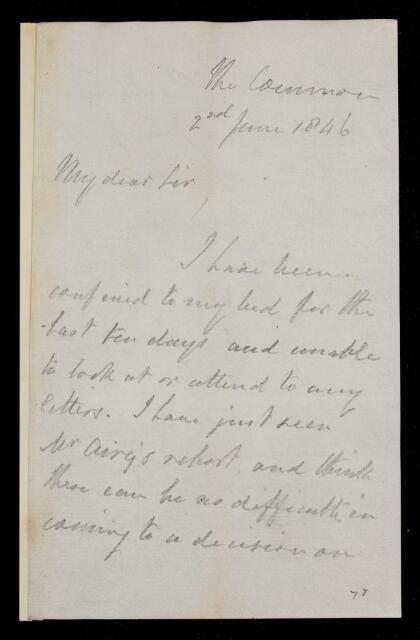 The Common
2nd June 1846
My dear Sir,
I have been
confined to my bed for the
last ten days and unable
to look at or attend to any
letters. I have just seen
Mr Airy's report, and think
there can be no difficulty in
coming to a decision on
78